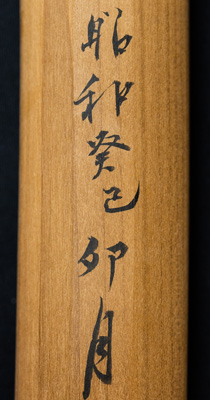 昭和癸巳卯月